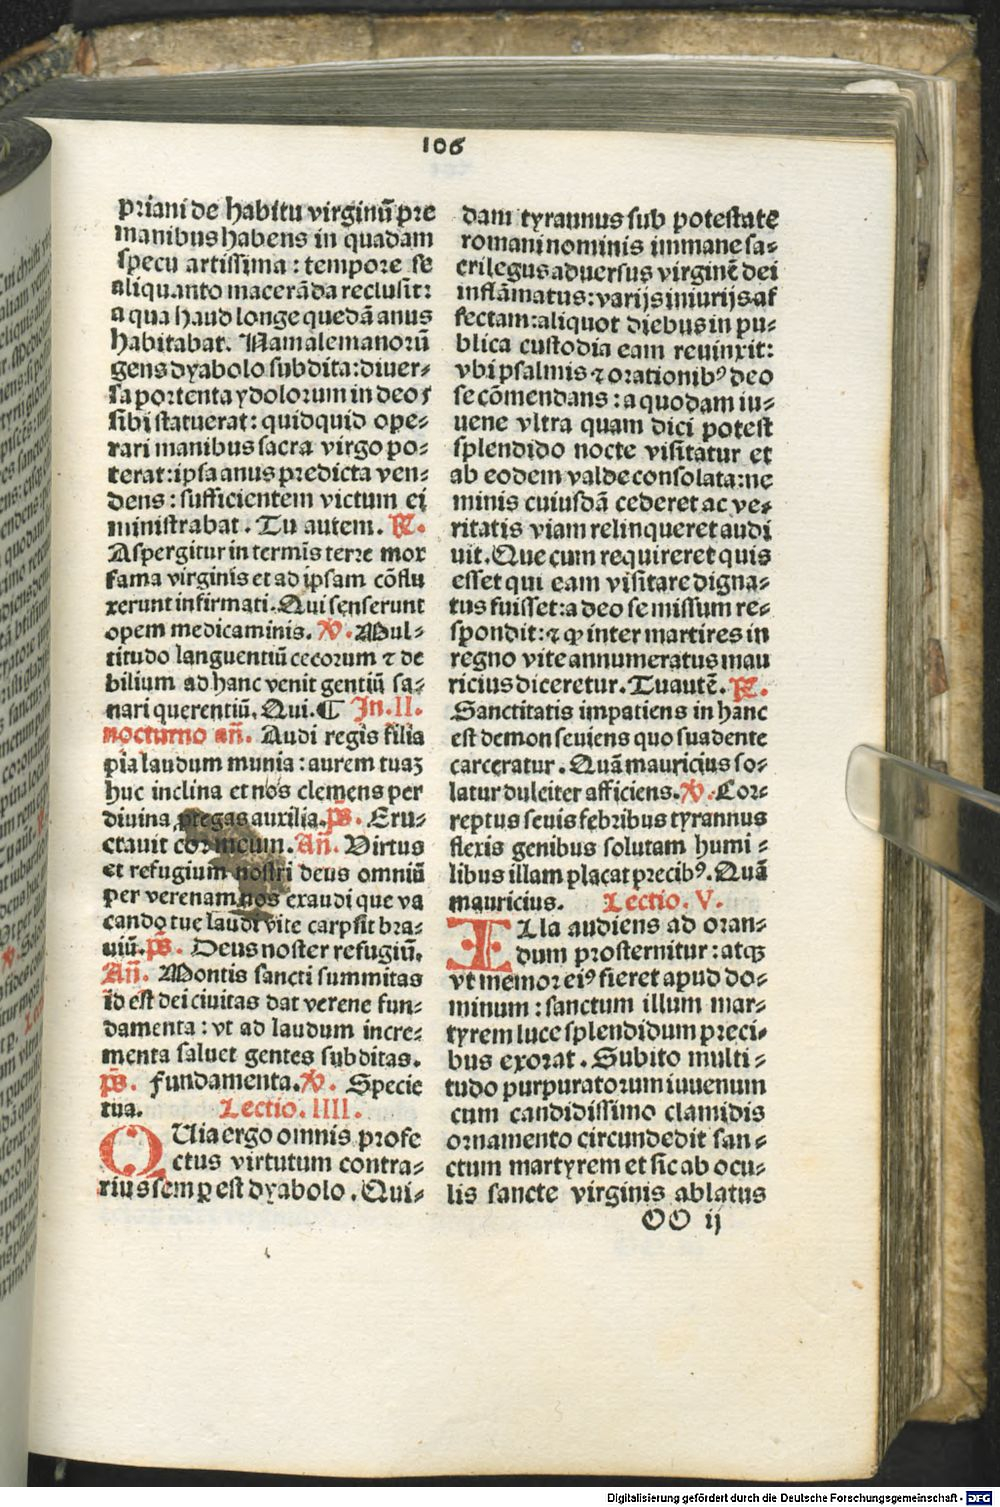 106
priani de habitu virginū pre
manibus habens in quadam
specu artissima : tempore se
aliquanto macerāda reclusit:
a qua haud longe quedā anus
habitabat. Nam alemanorū
gens dyabolo subdita: diuer-
sa portenta ydolorum in deos
sibi statuerat : quidquid ope-
rari manibus sacra virgo po-
terat: ipsa anus predicta ven-
dens : sufficientem victum ei
ministrabat. Tu autem. ℟.
Aspergitur in termis terre mox
fama virginis et ad ipsam cōflu
xerunt infirmati. Qui senserunt
opem medicaminis. ℣. Mul-
titudo languentiū cecorum ⁊ de
bilium ad hanc venit gentiū sa-
nari querentiū. Qui. ¶ In. II.
nocturno añ. Audi regis filia
pia laudum munia : aurem tuaꝫ
huc inclina et nos clemens per
diuina pregas auxilia. p̄s. Eru-
ctauit cor meum. Añ. Virtus
et refugium nostri deus omniū
per verenam nos exaudi que va
cando tue laudi vite carpsit bra-
uiū. p̄s. Deus noster refugiū.
Añ. Montis sancti summitas
id est dei ciuitas dat verene fun-
damenta : vt ad laudum incre-
menta saluet gentes subditas.
p̄s. Fundamenta. ℣. Specie
tua. Lectio. IIII.
QUia ergo omnis profe
ctus virtutum contra-
rius semꝑ est dyabolo. Qui-
dam tyrannus sub potestate
romani nominis immane sa-
crilegus aduersus virginē dei
inflāmatus: varijs iniurijs af
fectam: aliquot diebus in pu-
blica custodia eam reuinxit:
vbi psalmis ⁊ orationibꝰ deo
se cōmendans : a quodam iu-
uene vltra quam dici potest
splendido nocte visitatur et
ab eodem valde consolata: ne
minis cuiusdā cederet ac ve-
ritatis viam relinqueret audi
uit. Que cum requireret quis
esset qui eam visitare digna-
tus fuisset: a deo se missum re-
spondit: ⁊ ꝙ inter martires in
regno vite annumeratus mau
ricius diceretur. Tu autē. ℟.
Sanctitatis impatiens in hanc
est demon seuiens quo suadente
carceratur. Quā mauricius so-
latur dulciter afficiens. ℣. Cor-
reptus seuis febribus tyrannus
flexis genibus solutam humi -
libus illam placat precibꝰ. Quā
mauricius. Lectio. V.
ILla audiens ad oran-
dum prosternitur : atqꝫ
vt memor eiꝰ fieret apud do-
minum : sanctum illum mar-
tyrem luce splendidum preci-
bus exorat. Subito multi -
tudo purpuratorum iuuenum
cum candidissimo clamidis
ornamento circundedit san -
ctum martyrem et sic ab ocu-
lis sancte virginis ablatus
OO ij
Digitalisierung gefördert durch die Deutsche Forschungsgemeinschaft - DFG